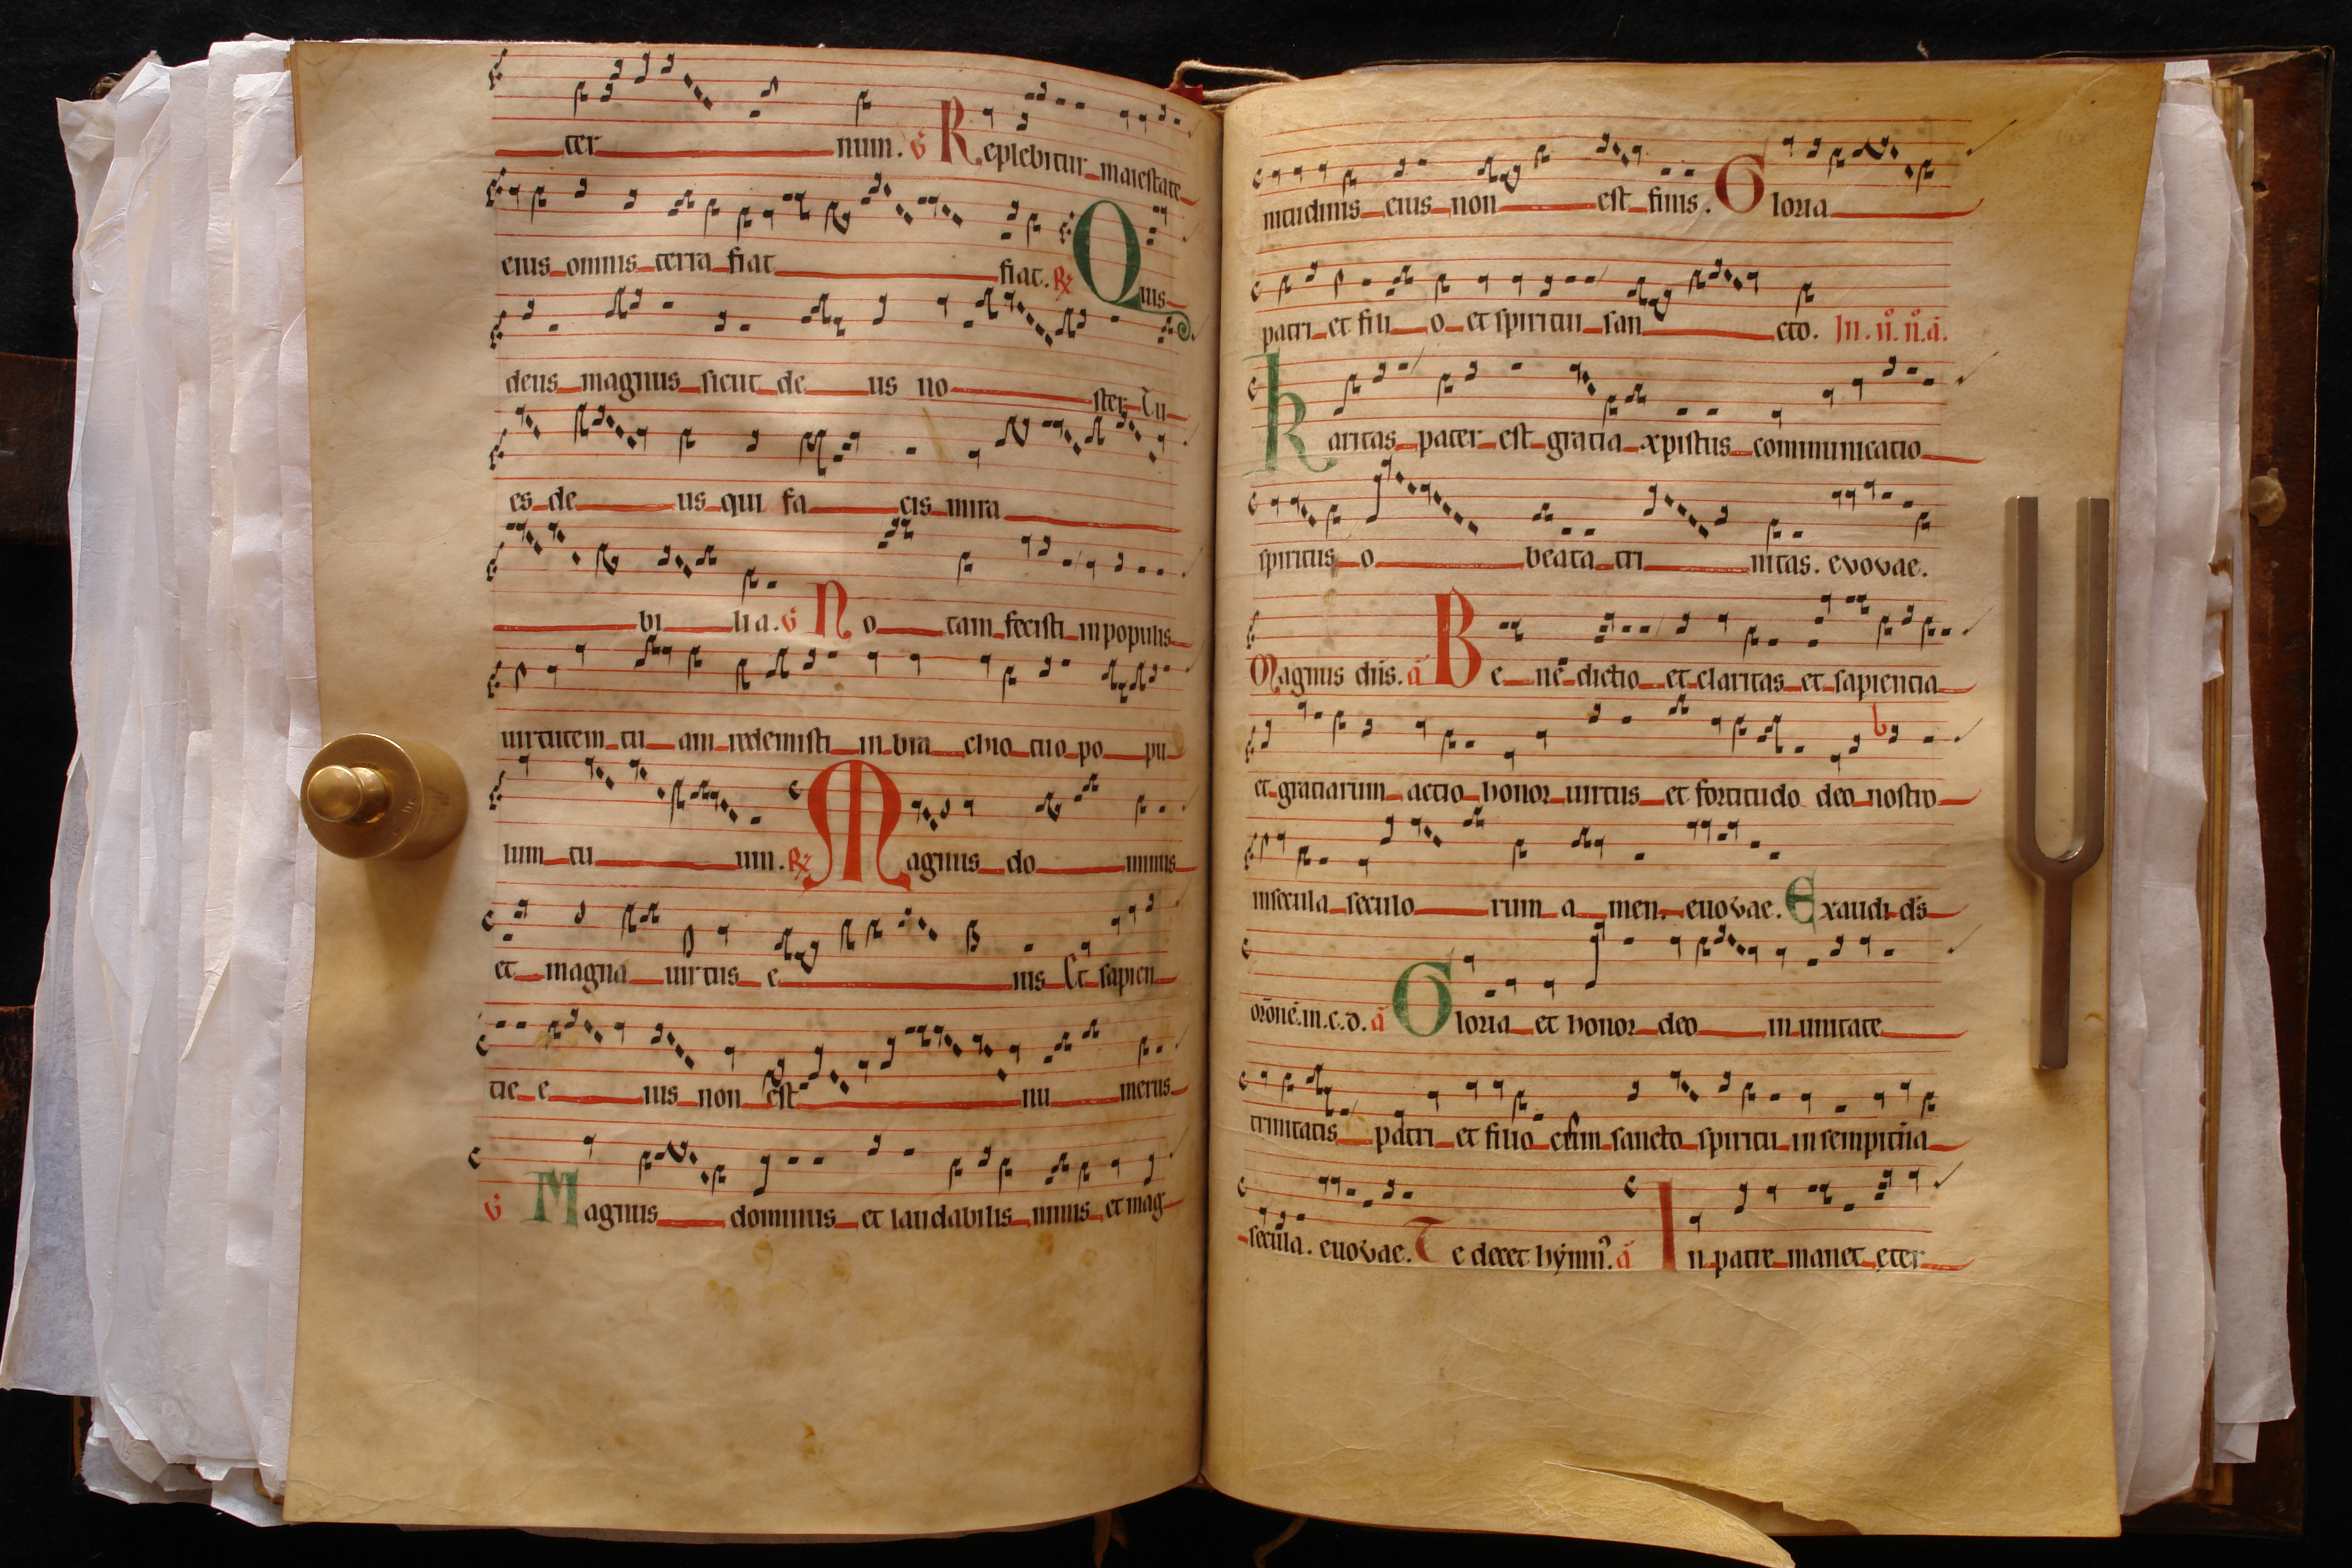 ter num. V Replebitur maiestate
eius omnis terra fiat fiat. R Quis
deus magnus sicut de us no ster Tu
es de us qui fa cis mira
bi li a. V No tam fecisti in populis
uirtutem tu am redemisti in bra chio tuo po pu
lum tu um. R Magnus do minus
et magna uirtus e ius Et sapien
tie e ius non est nu merus
V Magnus dominus et laudabilis nimis et mag
nitudinis eius non est finis. Gloria
patri et fili o et spiritui san cto. In. ii. ii. a.
Karitas pater est gratia xpistus communicatio
spiritus o beata tri nitas. evovae.
Magnus dns. a Be ne dictio et claritas et sapientia
et gratiarum actio honor uirtus et fortitudo deo nostro
in secula seculo rum a men. euovae. Exaudi ds
orōnē. m. c. d. a Gloria et honor deo in unitate
trinitatis patri et filio cum sancto spiritu in sempitna
secula. euovae. Te decet hymn. a In patre manet eter